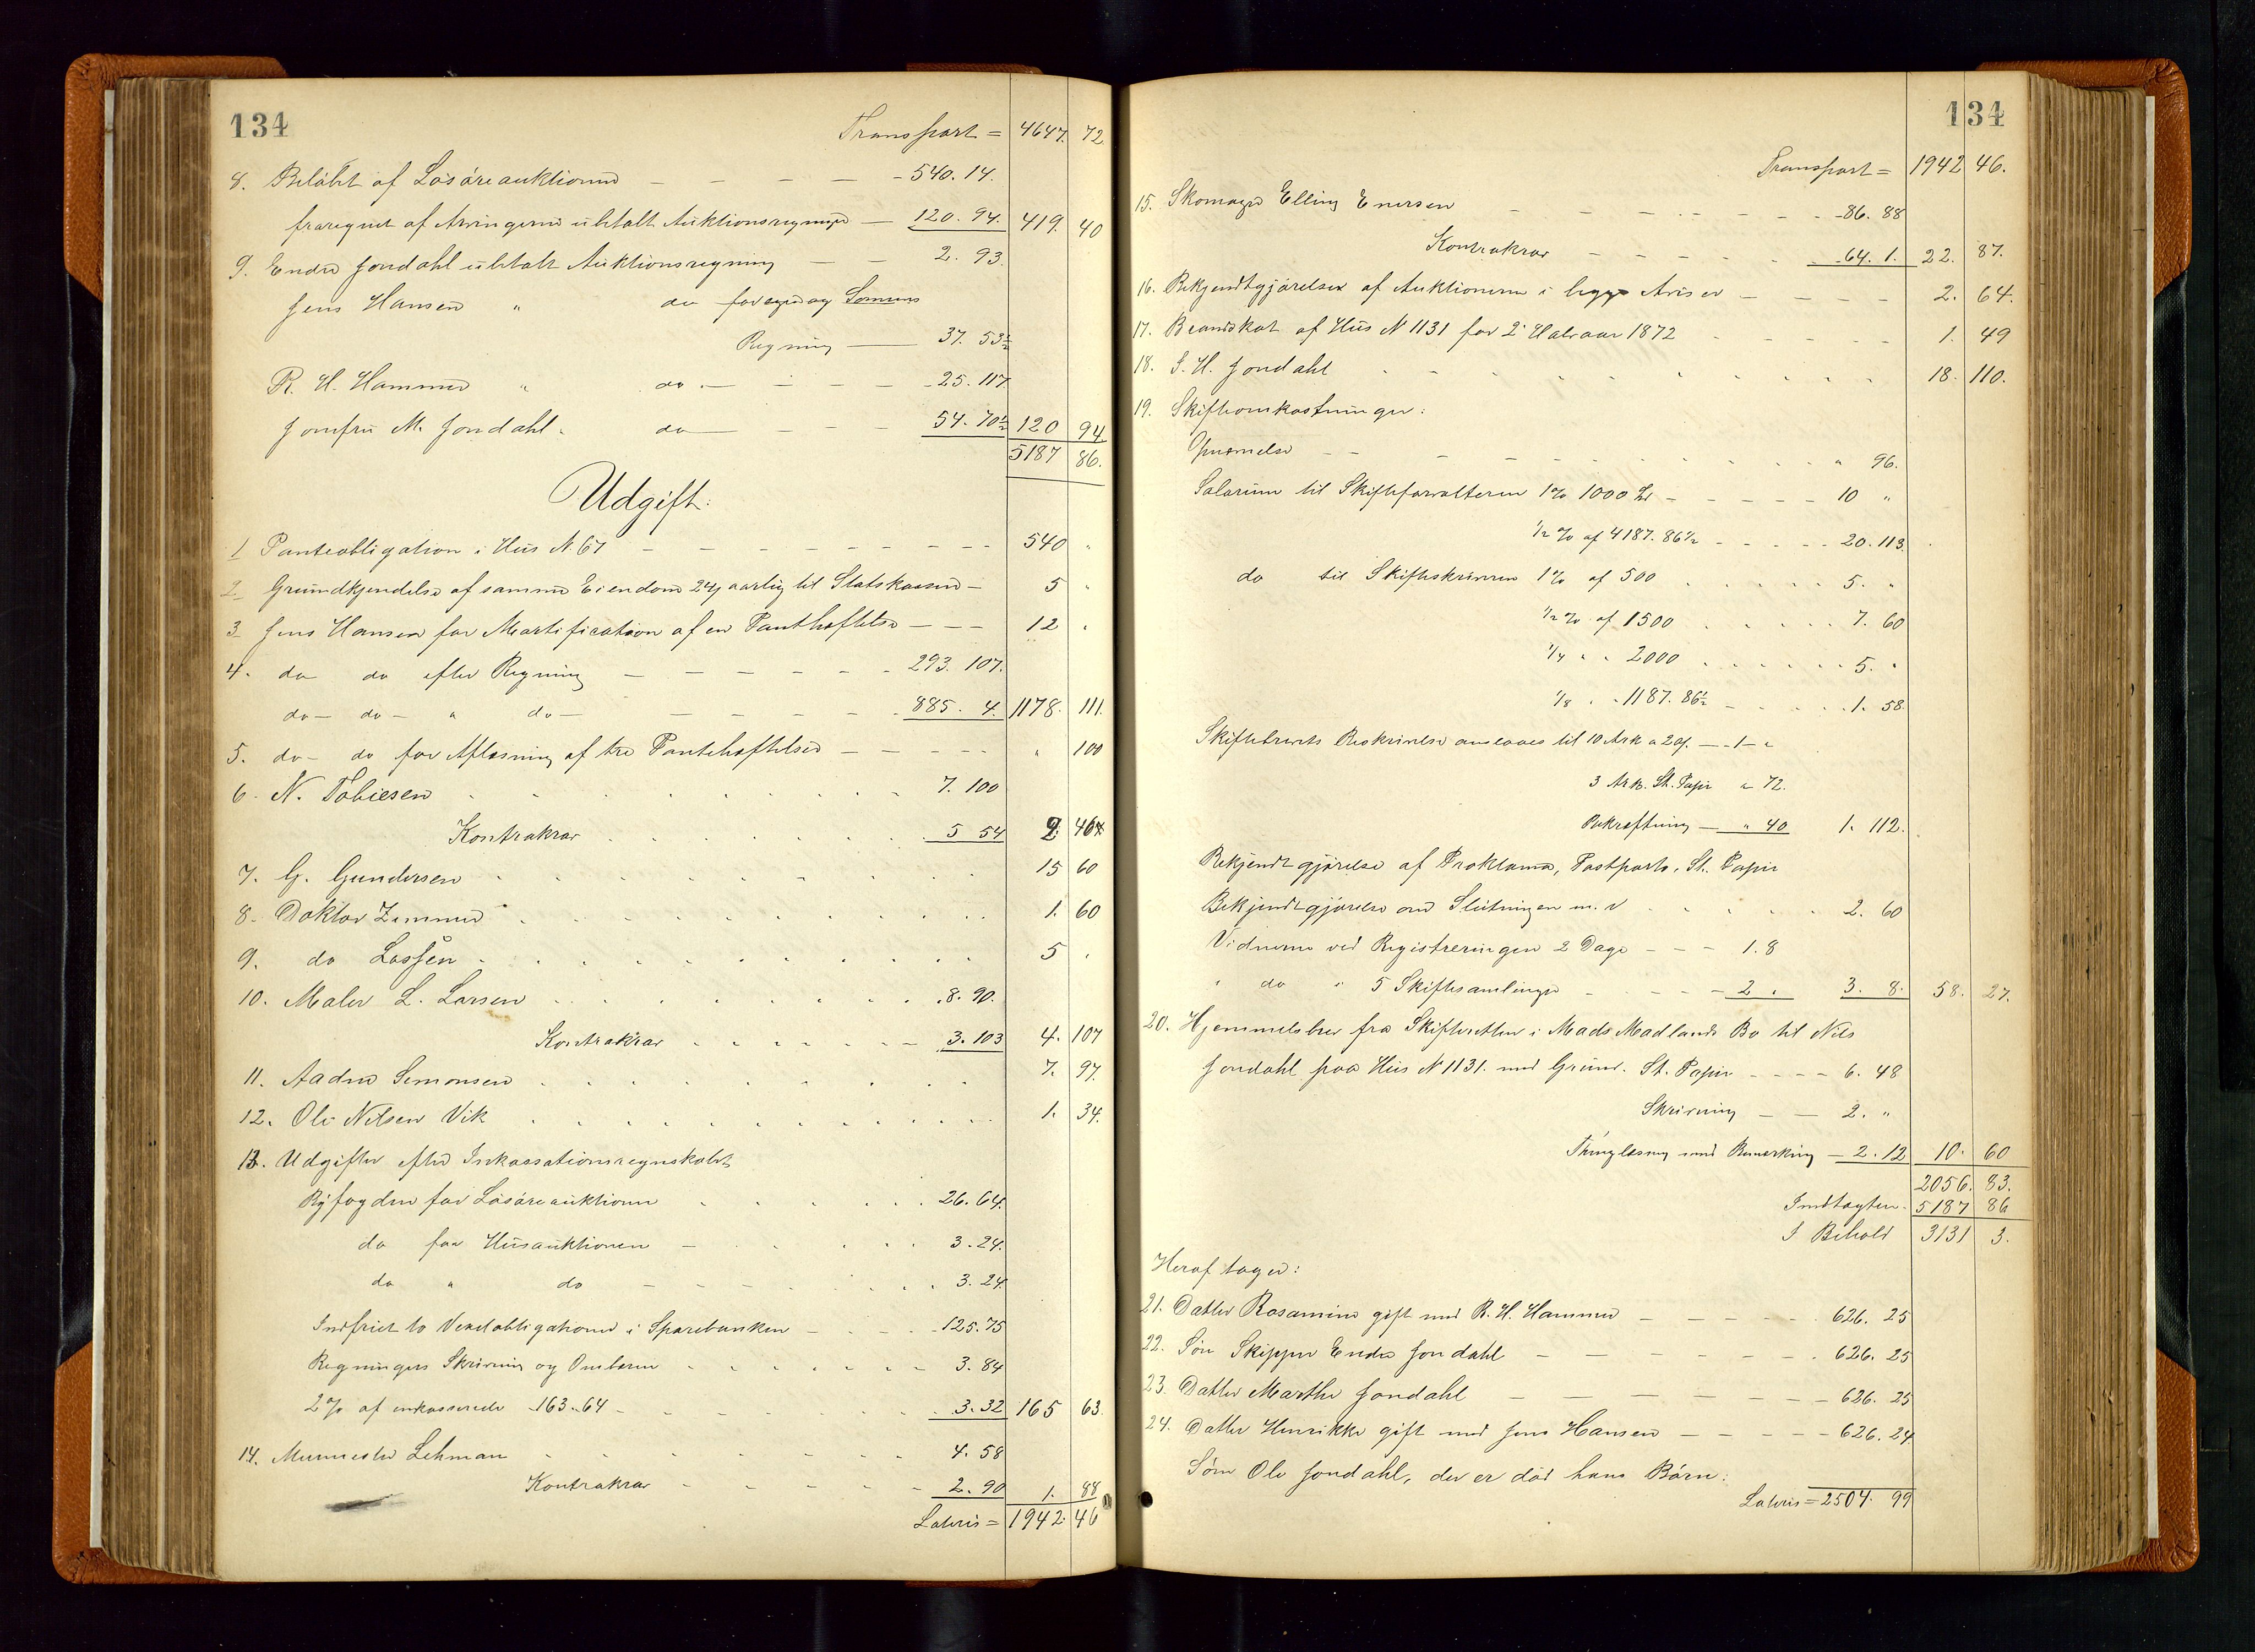 134
Transport = 4647. 72
8. Beløbet af Løsøreauktionen — — — — 540. 14.
fraregnet af Arvingerne ubetalt Auktionsregninger — 120. 94. 419. 40
9. Endre Jondahl ubetalt Auktionsregning — — 2. 93.
Jens Hansen " do for egen og Sønnens
Regning — 37. 53½
R. H. Hammer " do. — — — — 25. 117
Jomfru M. Jondahl. do — — — — 54. 70½ 120 94
5187 86.
Udgift:
1 Panteobligation i Hus N. 67 — — — — — — — — 540 "
2 Grundkjendelse af samme Eiendom 24 aarlig til Statskassen — 5 "
3 Jens Hansen for Mortification af en Pantheftelse — — — 12 "
4. do do efter Regning — — — — — 293. 107.
do — do — " do — — — — — 885. 4. 1178. 111.
5. do — do for Aflæsning af tre Pantehæftelser — — — — " 100
6. N. Tobiesen 7. 100
Kontrakrav 5 54 2. 46
7. G. Gundersen 15 60
8. Doktor Zimmer 1. 60
9. do Lassen 5 "
10. Maler L. Larsen 8. 90.
Kontrakrav 3. 103 4. 107
11. Aadne Simonsen 7. 97.
12. Ole Nilsen Vik 1. 34.
13. Udgifter efter Inkassationsregnskabet
Byfogden for Løsøreauktionen 26. 64.
do for Husauktionen — 3. 24.
do " do — 3. 24
Indfriet to Vexelobligationer i Sparebanken — 125. 75
Regningers Skrivning og Ombæren 3. 84
2% af inkasserede 163. 64 — 3. 32 165 63.
14. Murmester Lehman 4. 58
Kontrakrav 2. 90 1. 88
Lateris = 1942. 46
134
Transport = 1942 46.
15. Skomager Elling Enersen — — — — — 86. 88
Kontrakrav — — — — 64. 1. 22. 87.
16. Bekjendtgjørelser af Auktionerne i begge Aviser — — — — 2. 64.
17. Brandskat af Hus N 1131 for 2' Halvaar 1872 1. 49
18. J. H. Jondahl 18. 110.
19. Skifteomkostninger:
Opnævnelse — — " 96.
Salarium til Skifteforvalteren 1% 1000 — — — — 10 "
½ % af 4187. 86½ — — — — 20. 113.
do til Skifteskriveren 1% af 500 5. "
½ % af 1500 7. 60
¼ " " 2000 5. "
⅛ " " 1187. 86½ 1. 58.
Skiftebrevets Beskrivelse ansloaes til 10 Ark a 20/. — 1 — "
3 Ark. St. Papir " 72.
Bekræftning — " 40 1. 112.
Bekjendtgjørelse af Proklama, Postporto, St. Papir
Bekjendtgjørelse om Slutningen m. v 2. 60
Vidnerne ved Registreringen 2 Dage — — — 1. 8
" do " 5 Skiftesamlinger — — — 2 " 3. 8. 58. 27.
20. Hjemmelsbrev fra Skifteretten i Mads Madlands Bo til Nils
Jondahl paa Hus N 1131. med Grund. St. Papir — — — — 6. 48
Skrivning — — 2. "
Thinglæsning med Bemerkning — 2. 12 10. 60
2056. 83.
Indtægten. 5187 86
I Behold 3131 3.
Heraf tager:
21. Datter Rosamine gift med R. H. Hammer — — — — 626. 25
22. Søn Skipper Endre Jondahl — — — — — — 626. 25
23. Datter Marthe Jondahl — — — — — — 626. 25
24. Datter Henrikke gift med Jens Hansen — — — — 626. 24
Søn Ole Jondahl, der er død hans Børn:
Lateris = 2504. 99